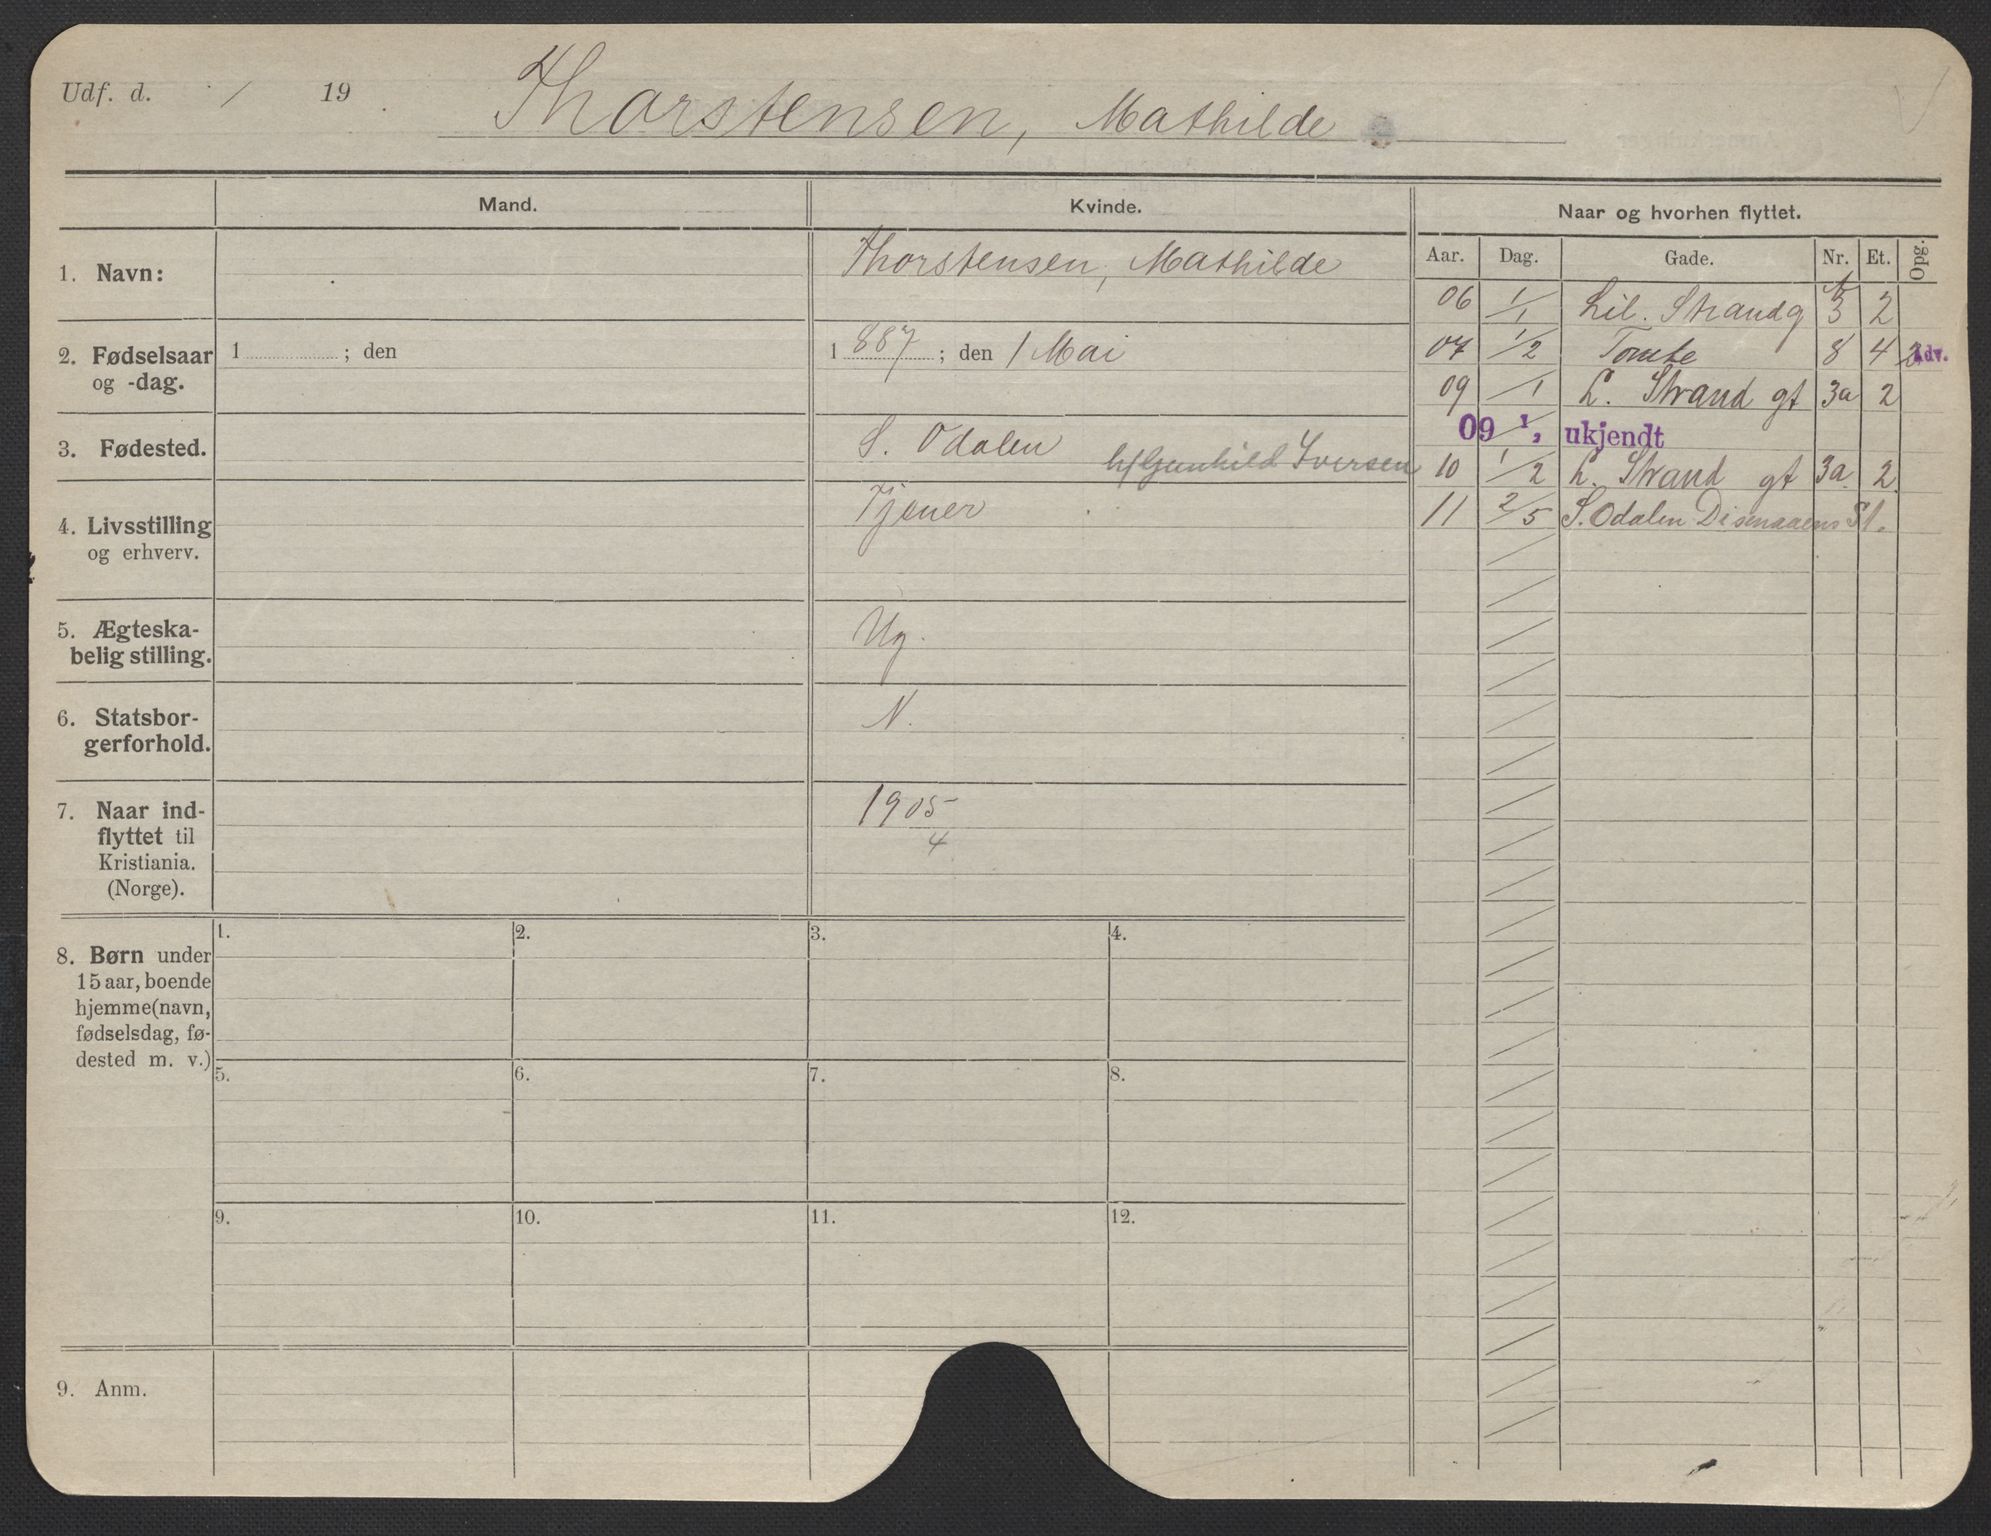 Udf. d. / 19
Thorstensen, Mathilde
Mand. Kvinde. Naar og hvorhen flyttet.
Aar. Dag. Gade. Nr. Et. Opg.
1. Navn: Thorstensen, Mathilde
2. Fødselsaar
og -dag.
1 ; den
1887 ; den 1 Mai
3. Fødested. S. Odalen h/Gunhild Iversen
4. Livsstilling
og erhverv.
Tjener
5. Ægteska-
belig stilling.
Ug.
6. Statsbor-
gerforhold.
N.
7. Naar ind-
flyttet til
Kristiania.
(Norge).
1905
4
8. Børn under
15 aar, boende
hjemme (navn,
fødselsdag, fø-
dested m. v.)
1. 2. 3. 4.
5. 6. 7. 8.
9. 10. 11. 12.
9. Anm.
06 1/1 Lil. Strandg 3 2
07 1/2 Tomte 8 4 Adv.
09 /1 L. Strand gt 3a 2
09 1/2 ukjendt
10 1/2 L. Strand gt 3a 2
11 2/5 S. Odalen Disenaaens St.